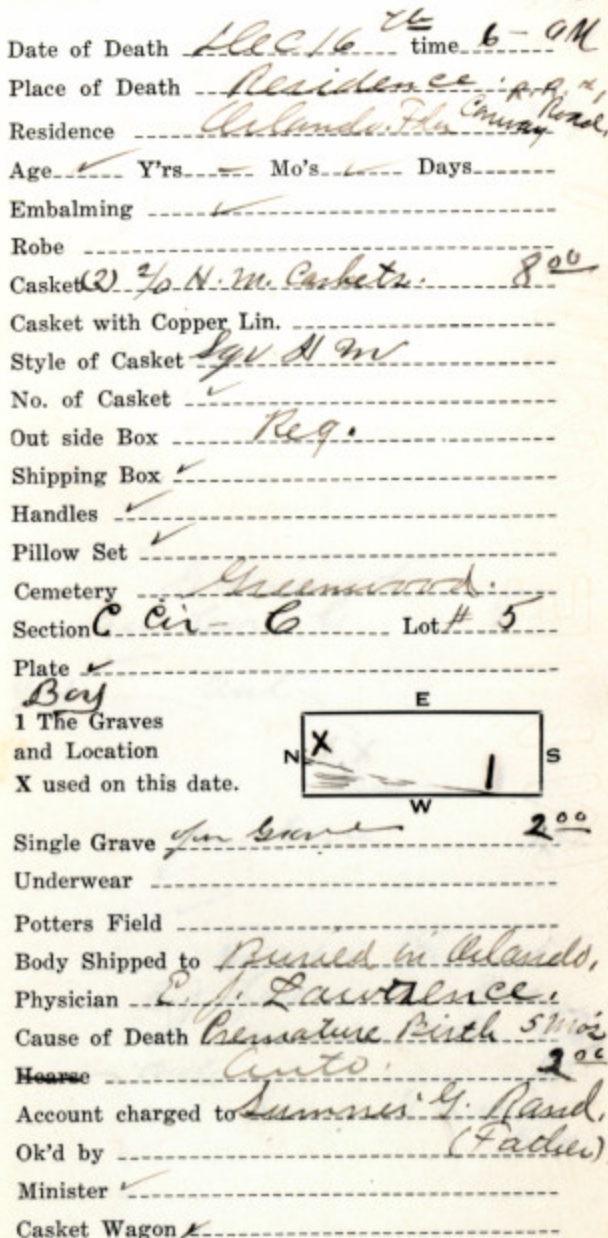 Date of Death Dec 16 th time 6- AM
Place of Death Residence. R.R. #1,
Residence Orlando. Fla Conway Road,
Age ✓ Y'rs – Mo's ✓ Days
Embalming ✓
Robe
Casket (2) 2/0 H. M. Caskets. 8 00
Casket with Copper Lin.
Style of Casket Sqr H M
No. of Casket ✓
Out side Box Reg.
Shipping Box ✓
Handles ✓
Pillow Set ✓
Cemetery Greenwood.
Section C Cir- C Lot # 5
Plate ✓
Boy
1 The Graves
and Location
X used on this date.
E
N X 1 S
W
Single Grave Grave 2 00
Underwear
Potters Field
Body Shipped to Buried in Orlando,
Physician E. J. Lawrence.
Cause of Death Premature Birth 5 Mo's
Hearse Auto. 2 00
Account charged to Sumner G. Rand,
Ok'd by (Father)
Minister ✓
Casket Wagon ✓